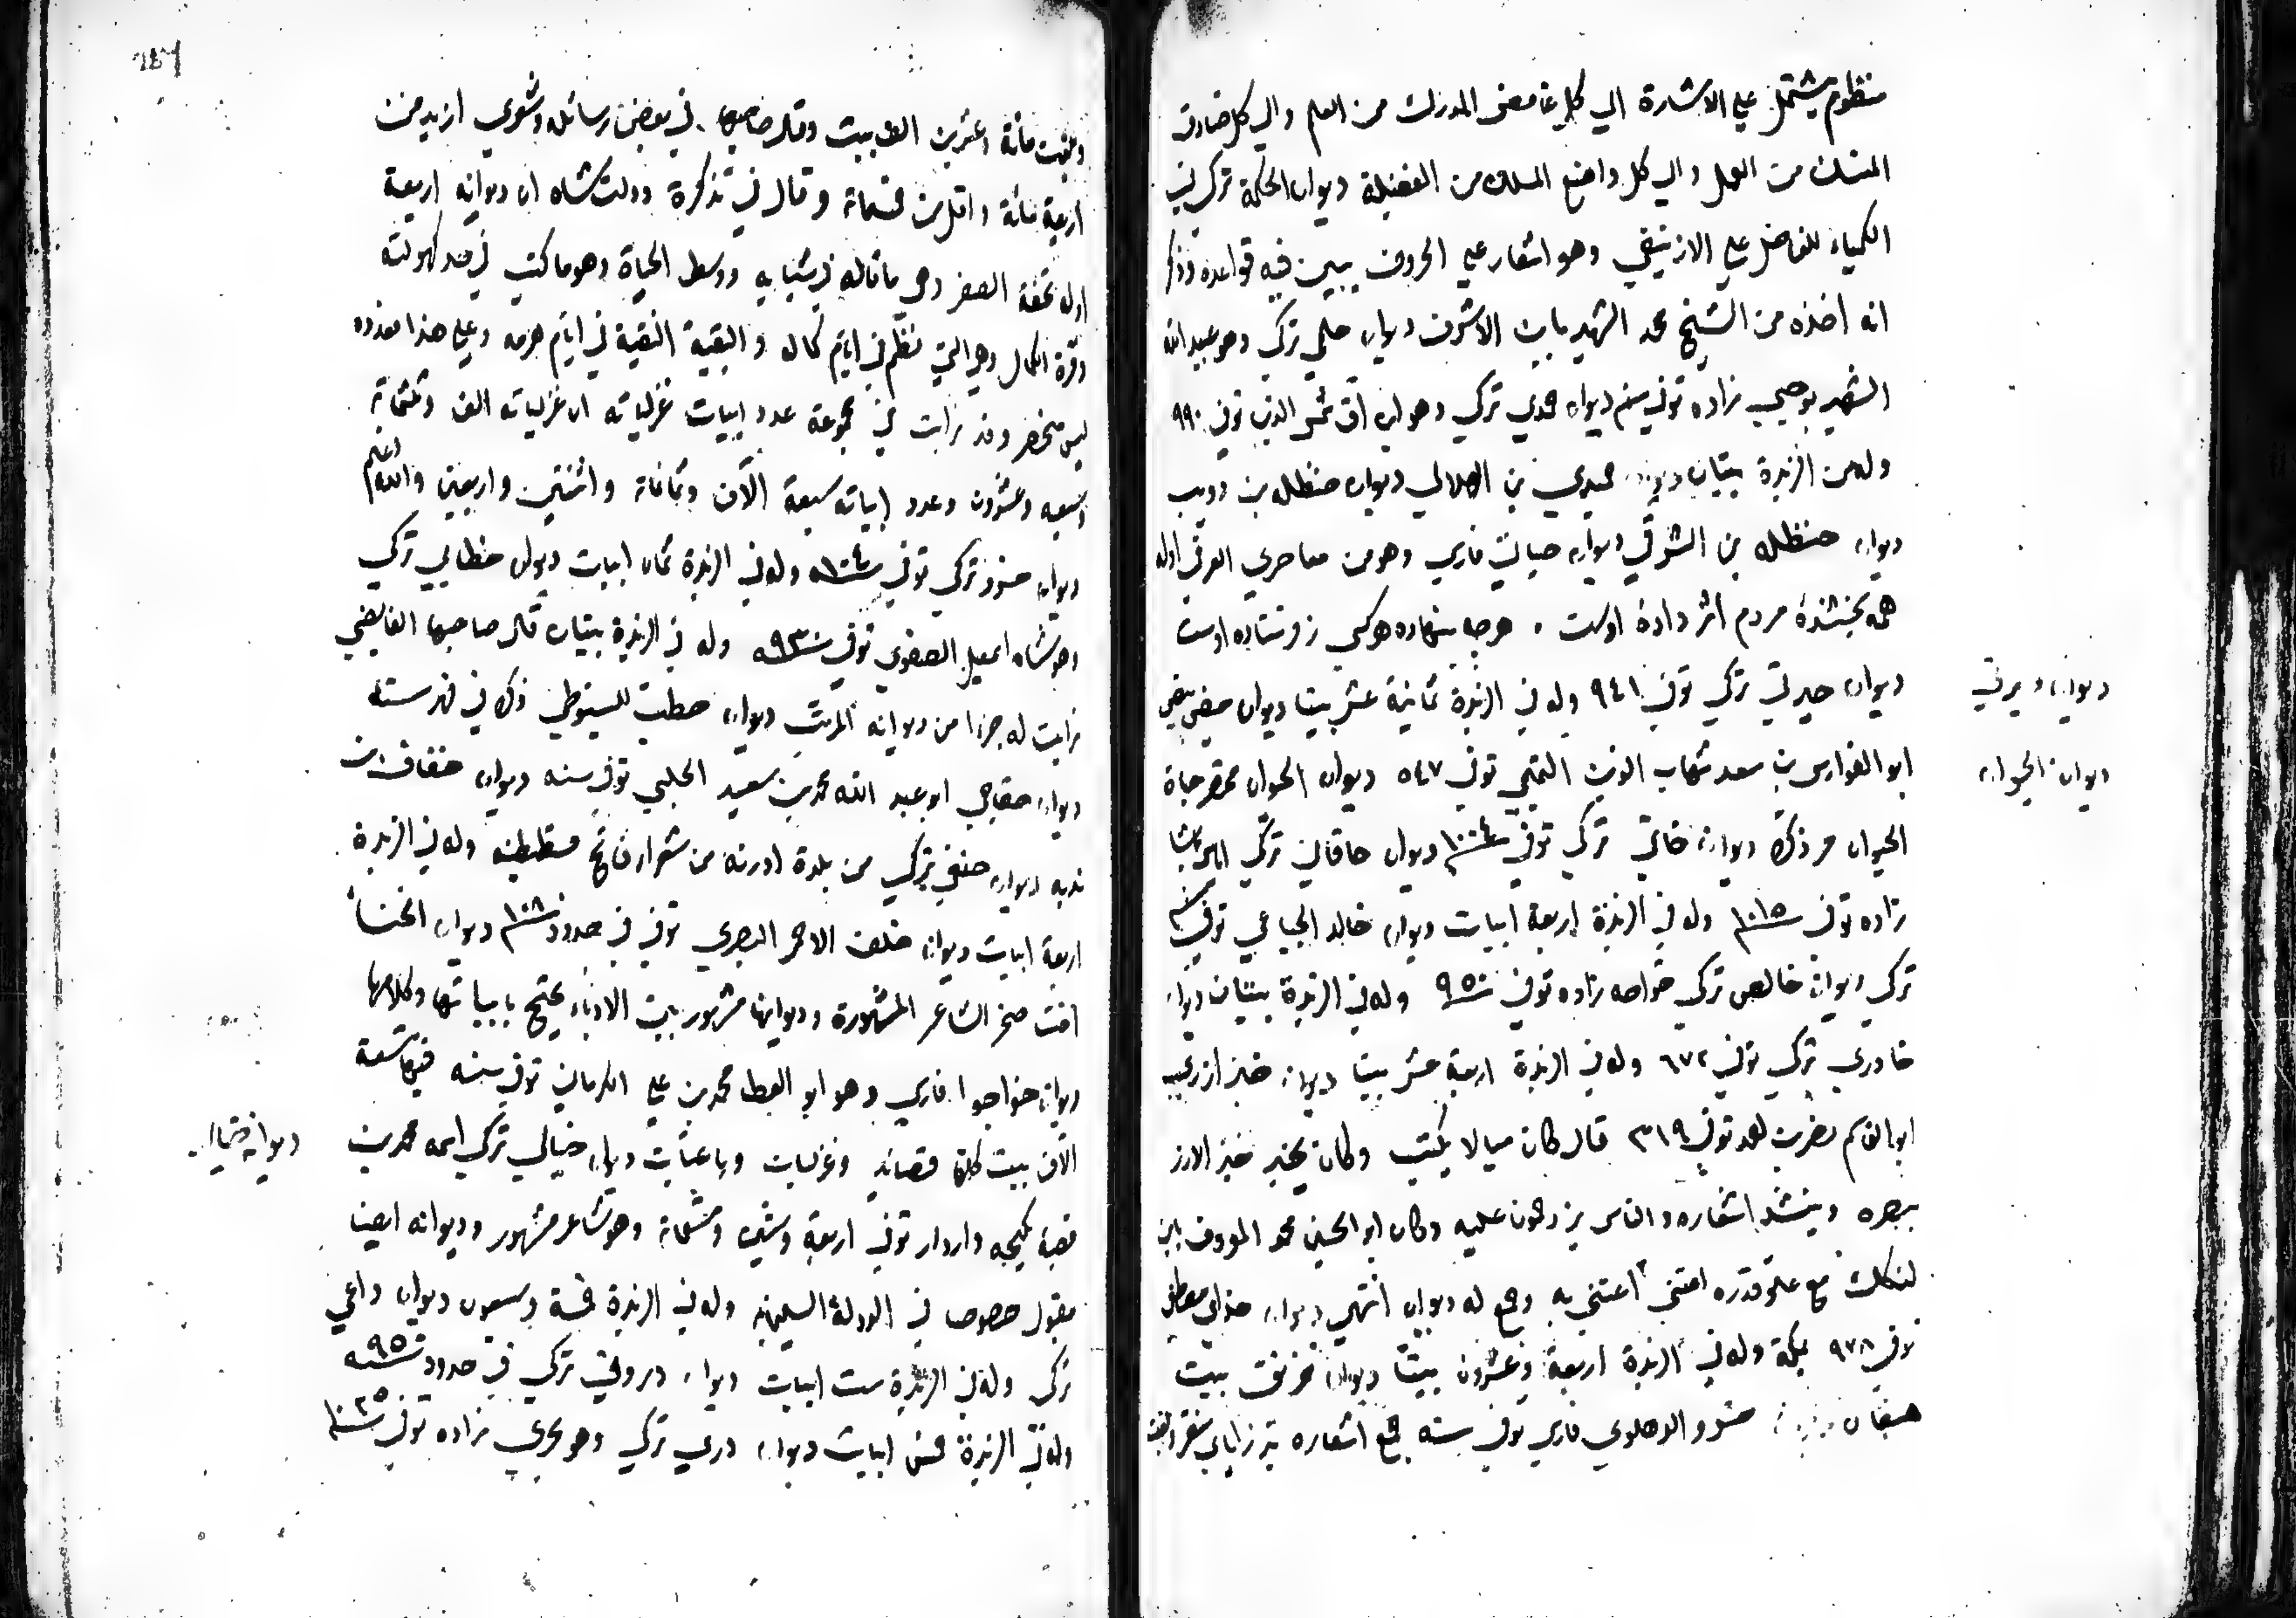 منظوم يشتمل علي الاشارة الي كل غامض المدرك من العلم والي كل صادق
المنسك من العمل والي كل واضح المسلك من الفضيلة ديوان الحكمة تركي في
الكمياء للفاضل علي الازنيقي وهو اشعار علي الحروف يبين فيه قواعده وذكر
انه اخذه من الشيخ محمد الشهير بابن الاشرف ديوان حلمي تركي وهو عبد الله
الشهير بوحيي زاده توفي سنه ديوان حمدي تركي وهو ابن اق شمس الدين توفي ٩٩٠
وله من الزبدة بيتان ديوان حميدي بن الهلالي ديوان حنظله بن دويب
ديوان حنظله بن الشرقي ديوان حياتي فارسي وهو من معاصري العرفي اوله
همه بخشندۀ مردم اثر دادۀ اوست . هرجا بنهاده هوكي زفرستاده اوست
ديوان حيرتي تركي توفي ٩٤١ وله في الزبدة ثمانية عشر بيتا ديوان حيص بيص
ابو الفوارس بن سعد شهاب الدين التميمي توفي ٥٤٧ ديوان الحيوان مختصر حياة
الحيوان مر ذكره ديوان خاتمي تركي توفي سنة ١٠٠٤ ديوان خاقاني تركي اياس باشا
زاده توفي سنة ١٠١٥ وله في الزبدة اربعة ابيات ديوان خالد توفي سنة
تركي ديوان خالص تركي خواجه زاده توفي سنة ٩٥٠ وله في الزبدة بيتان ديوان
خاوري تركي توفي ٦٧٢ وله في الزبدة اربعة عشر بيتا ديوان خبز ارزي
ابو القاسم نصر بن احمد توفي ٣١٩ قال كان ميالا يكتب وكان يخبز خبز الارز
ببصره وينشد اشعاره والناس يزدحمون عليه وكان ابو الحسين محمد المعروف بابن
لنكك مع علو قدره اعتني اعتني به وجمع له ديوان انتهي ديوان مصطفي
توفي ٩٧٨ بمكة وله في الزبدة اربعة وعشرون بيتا ديوان خرنق بنت
هفان ديوان خسرو الدهلوي فارسي توفي سنه جمع اشعاره
ديوان حيرتي
ديوان الحيوان
وبلغت مائة وعشرين الف بيت وقال صاحبها في بعض رسائله وشعري ازيد من
اربعة مائة واقل من خمسمائة وقال في تذكرة دولت شاه ان ديوانه اربعة
اوله تحفة الصغر وهي ما قاله في شبابه ووسط الحياة وهو ما كتب في حد كهولته
وغرة الكمال وهي التي نظم في ايام كماله والبقية النقية في ايام هرمه وعلي هذا معدوده
ليس منحصر وقد رايت في مجموعة عدد ابيات غزلياته ان غزلياته الف وثلثمائة
وسبعه وعشرون وعدد ابياته سبعة الآف وثمانمائة واثنتين واربعين والله اعلم
ديوان تركي توفي سنة ١٠٠٤ وله في الزبدة ثمان ابيات ديوان خطايي تركي
وهو شاه اسمعيل الصفوي توفي سنة ٩٣٠ وله في الزبدة بيتان قال صاحبها الفايضي
رايت له جزءا من ديوانه المرتب ديوان خطب للسيوطي ذكره في فهرسته
ديوان خفاجي ابو عبد الله محمد بن سعيد الحلبي توفي سنه ديوان خفاف بن
ندبه ديوان خفي تركي من بلدة ادرنه من شعراء فاتح قسطنطنيه وله في الزبدة
اربعة ابيات ديوان خلف الاحمر البصري توفي في حدود سنة ١٠٨ ديوان الخنساء
اخت صخر الشاعر المشهورة وديوانها مشهور بين الادباء يحتج بابياتها وكلامها
ديوان خواجوا فارسي وهو ابو العطا محمد بن علي الكرماني توفي سنه فيها تسعة
الآف بيت كلها قصائد وغزليات ورباعيات ديوان خيالي تركي اسمه محمد من
قصبة يكيجه واردار توفي اربعة وستين وتسعمائة وهو شاعر مشهور وديوانه ايضا
مقبول خصوصا في الدولة السليمانية وله في الزبدة خمسة وسبعون ديوان داعي
تركي وله في الزبدة ست ابيات ديوان دروني تركي في حدود سنة ٩٥٠
وله في الزبدة خمس ابيات ديوان دري تركي وهو بحري زاده توفي سنة ١٠٢٥
ديوان خيالي